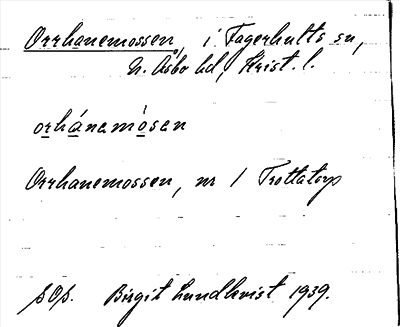 Orrhanemossen, i Fagerhults sn,
N. Åsbo hd, Krist. l.
orhánemòsen
Orrhanemossen, nr 1 Trottatorp
Birgit Lundkvist 1939.